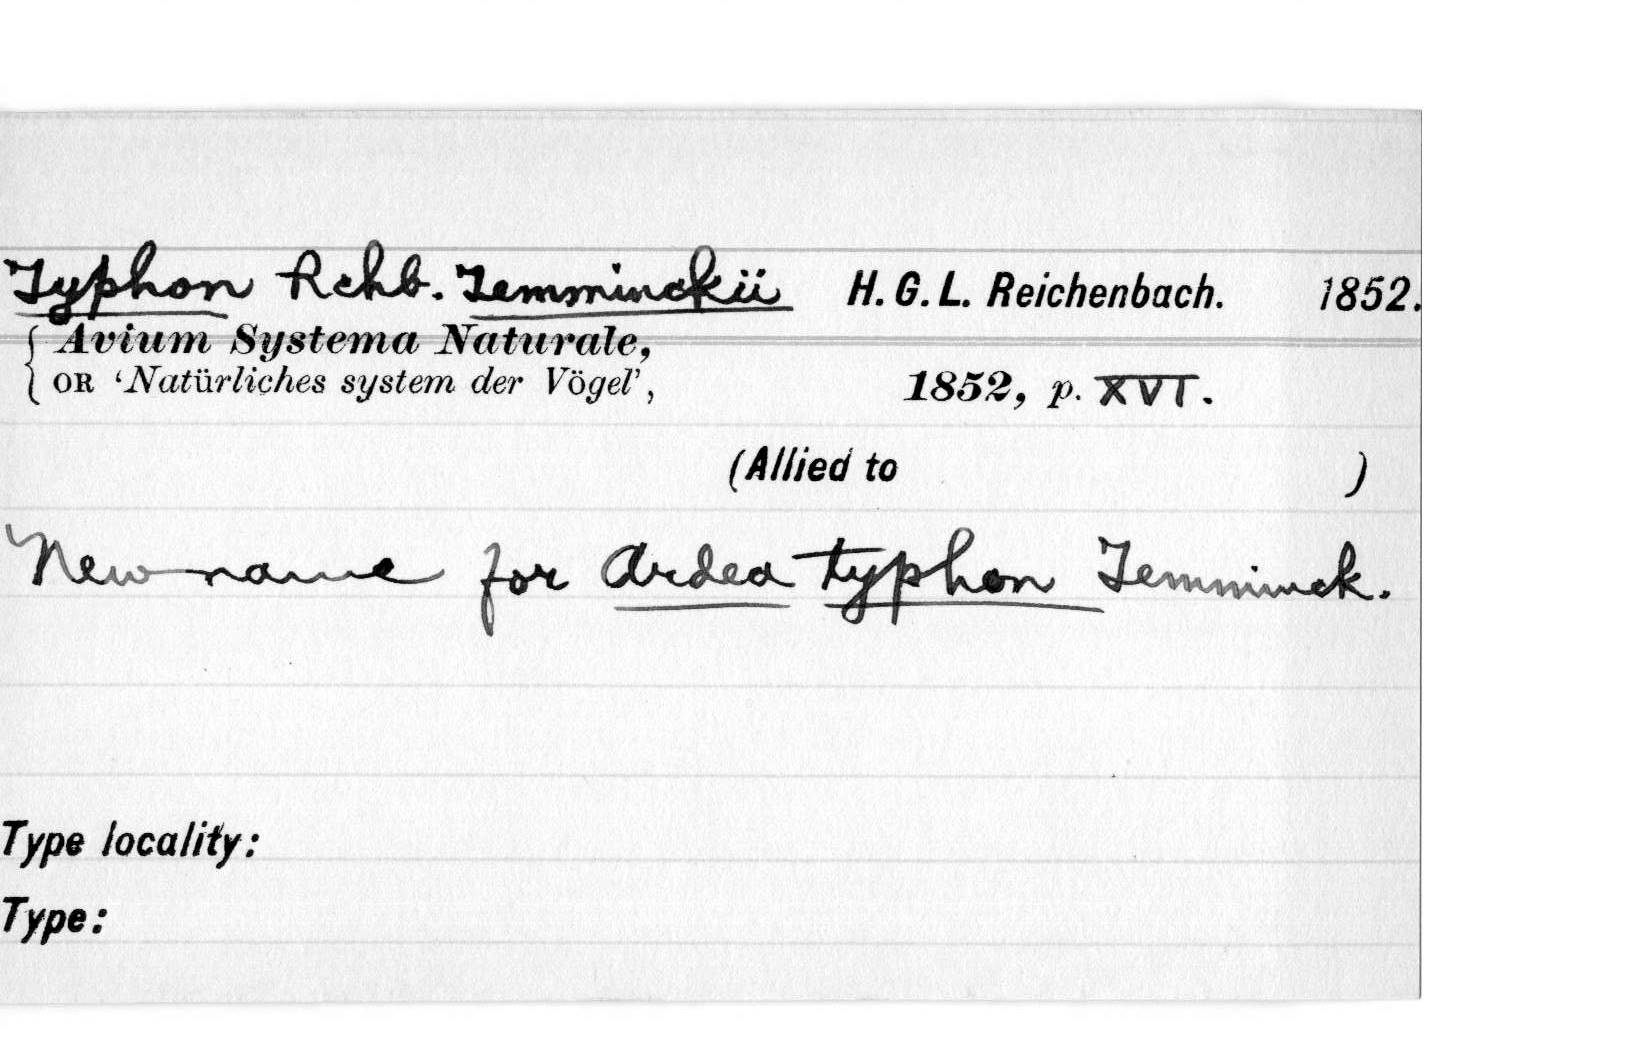 Typhon Rchb. Temminckii H. G. L. Reichenbach. 1852.
Avium Systema Naturale,
OR 'Natürliches system der Vögel', 1852, p. XVI.
(Allied to )
New name for Ardea typhon Temminck.
Type locality:
Type: